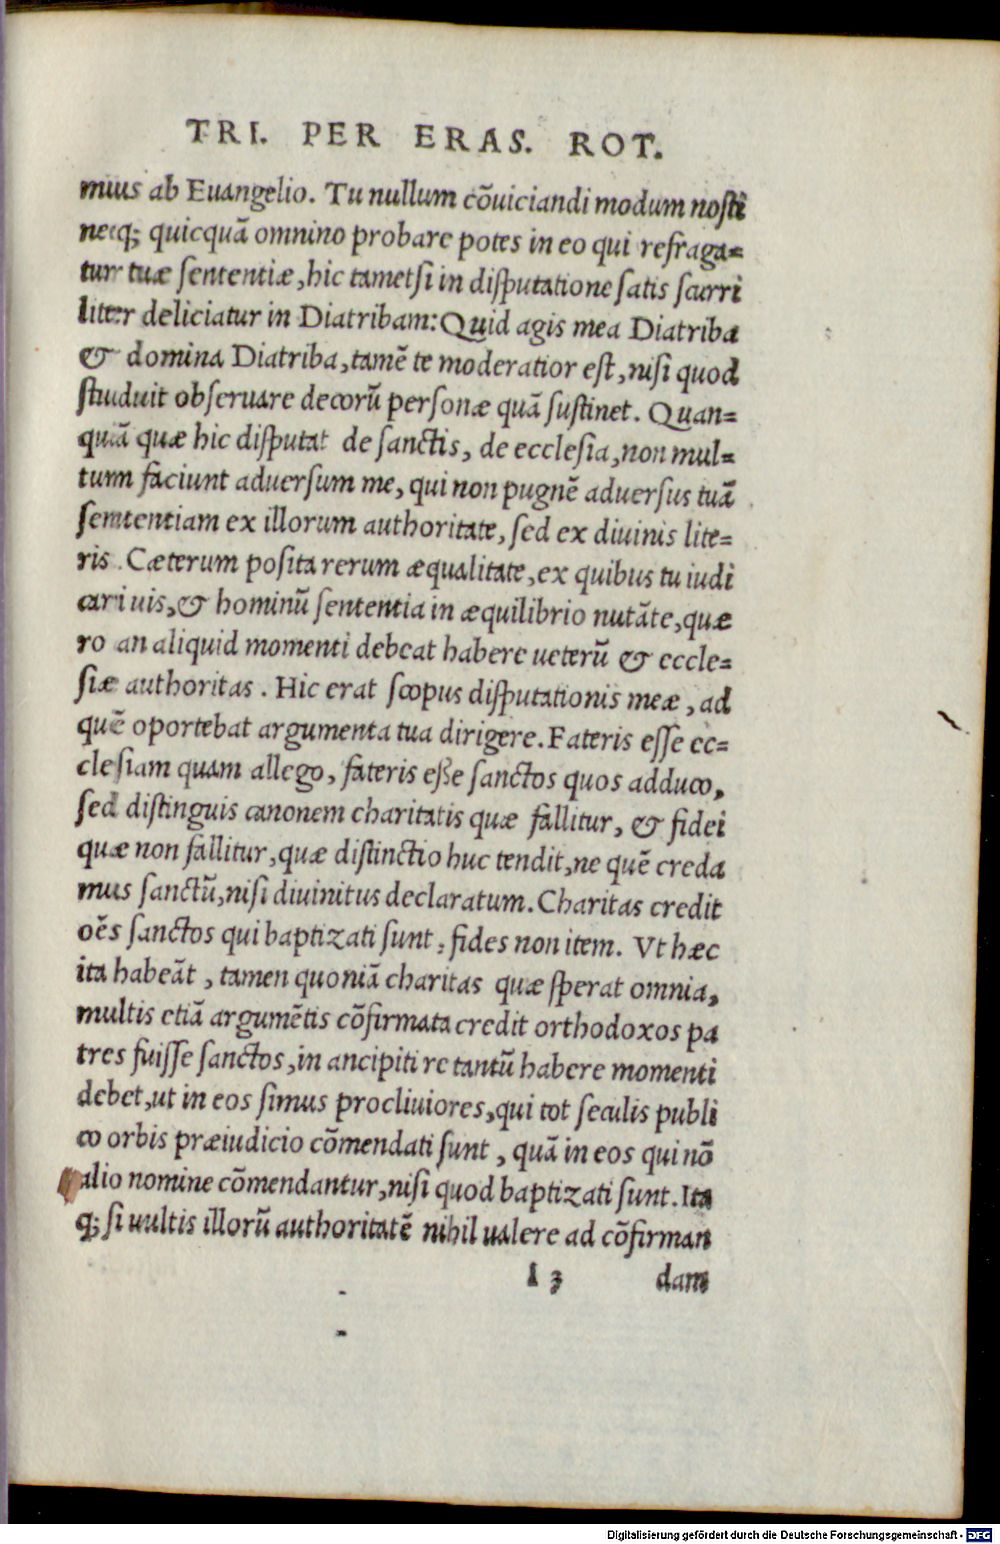 TRI. PER ERAS. ROT.
mius ab Euangelio. Tu nullum cōuiciandi modum nosti
necq; quicquā omnino probare potes in eo qui refraga=
tur tuæ sententiæ, hic tametsi in disputatione satis scurri
liter deliciatur in Diatribam: Quid agis mea Diatriba
& domina Diatriba, tamē te moderatior est, nisi quod
studuit obseruare decorū personæ quā sustinet. Quan=
quā quæ hic disputat de sanctis, de ecclesia, non mul=
tum faciunt aduersum me, qui non pugnē aduersus tuā
sententiam ex illorum authoritate, sed ex diuinis lite=
ris. Cæterum posita rerum æqualitate, ex quibus tu iudi
cari uis, & hominū sententia in æquilibrio nutāte, quæ
ro an aliquid momenti debeat habere ueterū & eccle=
siæ authoritas. Hic erat scopus disputationis meæ, ad
quē oportebat argumenta tua dirigere. Fateris esse ec=
clesiam quam allego, fateris eße sanctos quos adduco,
sed distinguis canonem charitatis quæ fallitur, & fidei
quæ non fallitur, quæ distinctio huc tendit, ne quē creda
mus sanctū, nisi diuinitus declaratum. Charitas credit
oēs sanctos qui baptizati sunt, fides non item. Vt hæc
ita habeāt, tamen quoniā charitas quæ sperat omnia,
multis etiā argumētis cōfirmata credit orthodoxos pa
tres fuisse sanctos, in ancipiti re tantū habere momenti
debet, ut in eos simus procliuiores, qui tot seculis publi
co orbis præiudicio cōmendati sunt, quā in eos qui nō
alio nomine cōmendantur, nisi quod baptizati sunt. Ita
q; si uultis illorū authoritatē nihil ualere ad cōfirman
l 3 dam
Digitalisierung gefördert durch die Deutsche Forschungsgemeinschaft - DFG